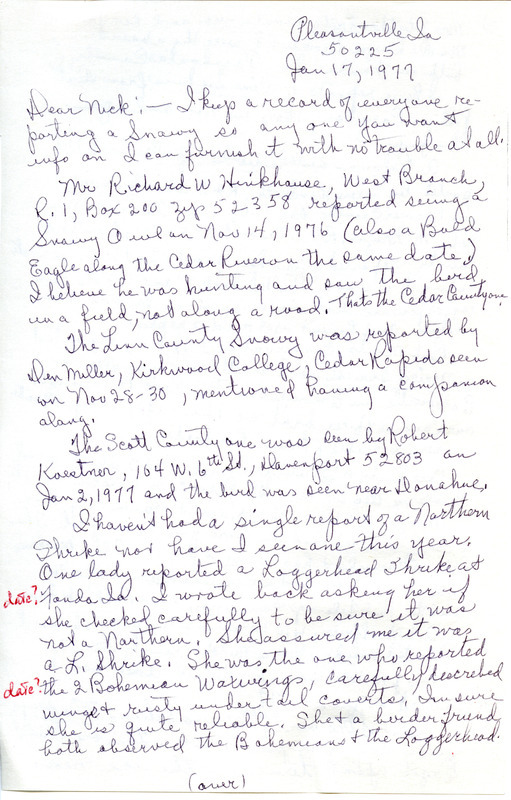 Pleasantville Ia
50225
Jan 17, 1977
Dear Nick: — I keep a record of everyone re-
porting a Snowy so any one you want
info on I can furnish it with no trouble at all.
Mr Richard W Hinkhouse, West Branch,
R. 1, Box 200 zip 52358 reported seeing a
Snowy Owl on Nov 14, 1976 (also a Bald
Eagle along the Cedar River on the same date)
I believe he was hunting and saw the bird
in a field, not along a road. Thats the Cedar County one
The Linn County Snowy was reported by
Den Miller, Kirkwood College, Cedar Rapids seen
on Nov 28-30, mentioned having a companion
along.
The Scott County one was seen by Robert
Koestner, 164 W. 6th St., Davenport 52803 on
Jan 2, 1977 and the bird was seen near Donahue.
I haven't had a single report of a Northern
Shrike nor have I seen one this year.
One lady reported a Loggerhead Shrike at
date? Fonda Ia. I wrote back asking her if
she checked carefully to be sure it was
not a Northern. She assured me it was
a L. Shrike. She was the one who reported
date? the 2 Bohemian Waxwings, carefully described
wings & rusty under tail coverts, Im sure
she is quite reliable. She & a birder friend
both observed the Bohemians & the Loggerhead.
(over)